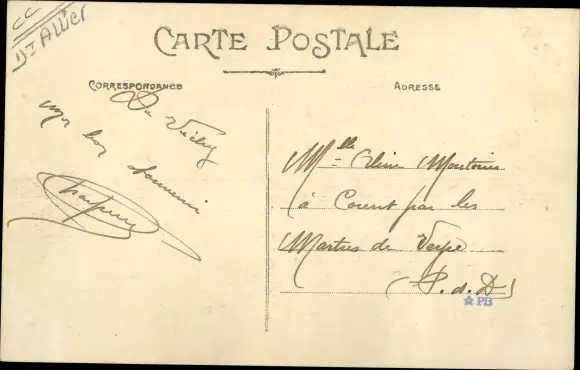 CC
Dt Allier
CARTE POSTALE
CORRESPONDANCE
ADRESSE
De Vichy
mon bon Souvenir
Mlle
à Corent par les
Martres de Veyre
(P. d. D)
PB